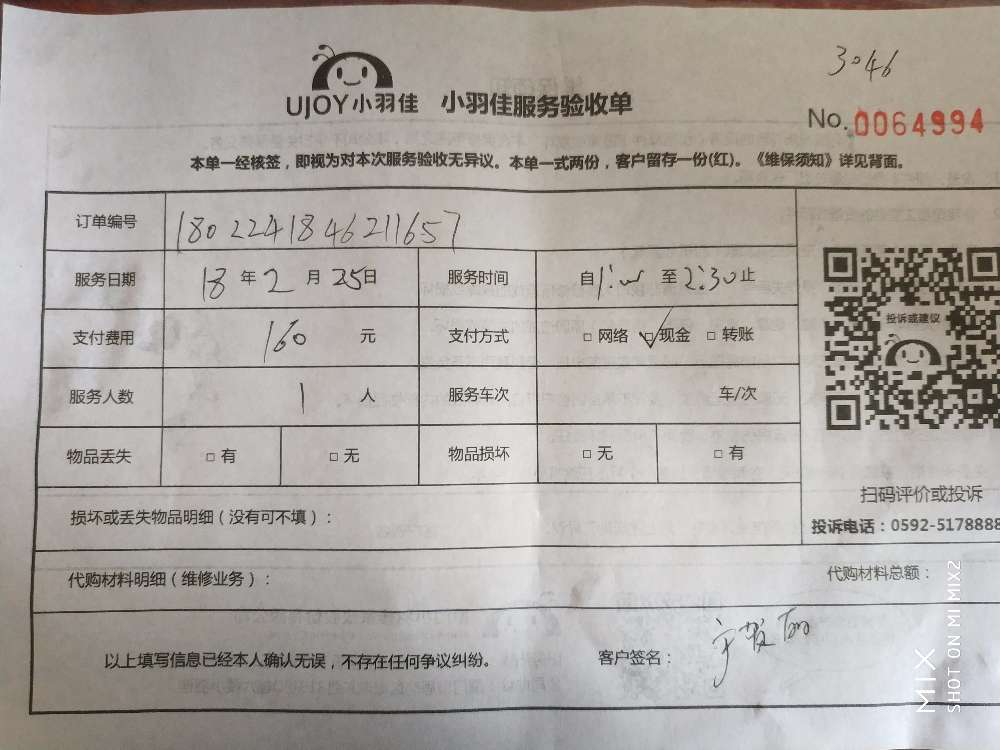 3046
UJOY小羽佳 小羽佳服务验收单
No. 0064994
本单一经核签，即视为对本次服务验收无异议。本单一式两份，客户留存一份(红)。《维保须知》详见背面。
订单编号 1802241846211657
服务日期 18 年 2 月 25 日 服务时间 自 1:00 至 2:30 止
支付费用 160 元 支付方式 □ 网络 ☑ 现金 □ 转账
服务人数 1 人 服务车次 车/次
物品丢失 □ 有 □ 无 物品损坏 □ 无 □ 有
投诉或建议
扫码评价或投诉
投诉电话：0592-5178888
损坏或丢失物品明细（没有可不填）：
代购材料明细（维修业务）： 代购材料总额：
以上填写信息已经本人确认无误，不存在任何争议纠纷。 客户签名：
MIX
SHOT ON MI MIX2